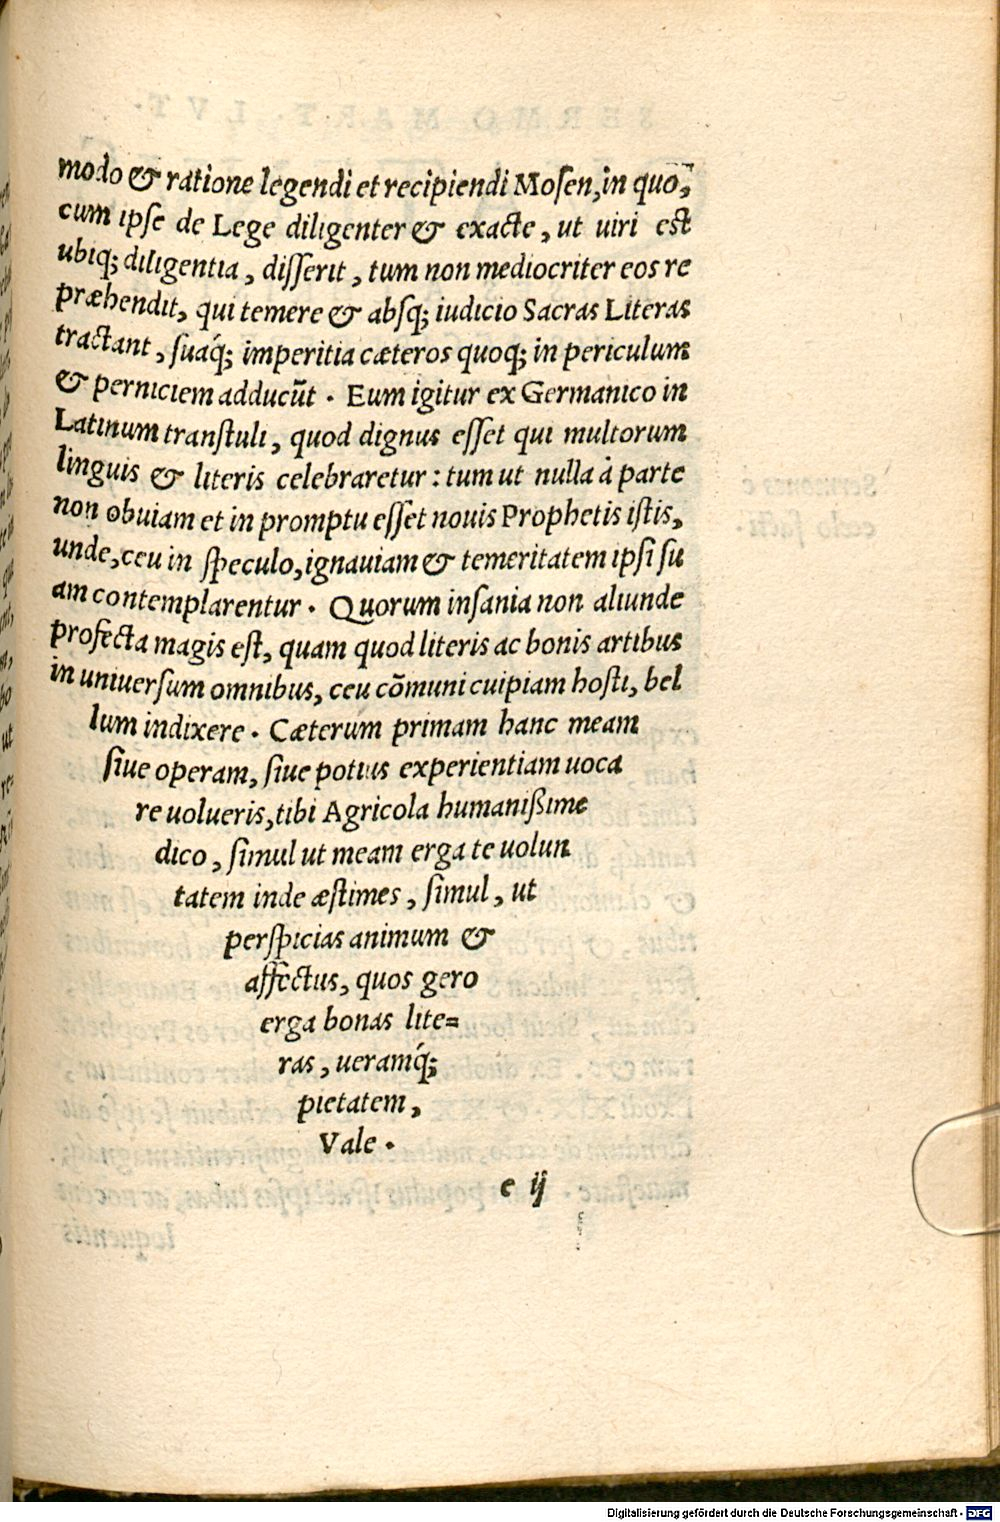 modo & ratione legendi et recipiendi Mosen, in quo,
cum ipse de Lege diligenter & exacte, ut uiri est
ubiq; diligentia, disserit, tum non mediocriter eos re
præhendit, qui temere & absq; iudicio Sacras Literas
tractant, suaq́; imperitia cæteros quoq; in periculum
& perniciem adducūt. Eum igitur ex Germanico in
Latinum transtuli, quod dignus esset qui multorum
linguis & literis celebraretur: tum ut nulla à parte
non obuiam et in promptu esset nouis Prophetis istis,
unde, ceu in speculo, ignauiam & temeritatem ipsi su
am contemplarentur. Quorum insania non aliunde
profecta magis est, quam quod literis ac bonis artibus
in uniuersum omnibus, ceu cōmuni cuipiam hosti, bel
lum indixere. Cæterum primam hanc meam
siue operam, siue potius experientiam uoca
re uolueris, tibi Agricola humanißime
dico, simul ut meam erga te uolun
tatem inde æstimes, simul, ut
perspicias animum &
affectus, quos gero
erga bonas lite=
ras, ueramq́;
pietatem,
Vale.
e ij
Digitalisierung gefördert durch die Deutsche Forschungsgemeinschaft - DFG